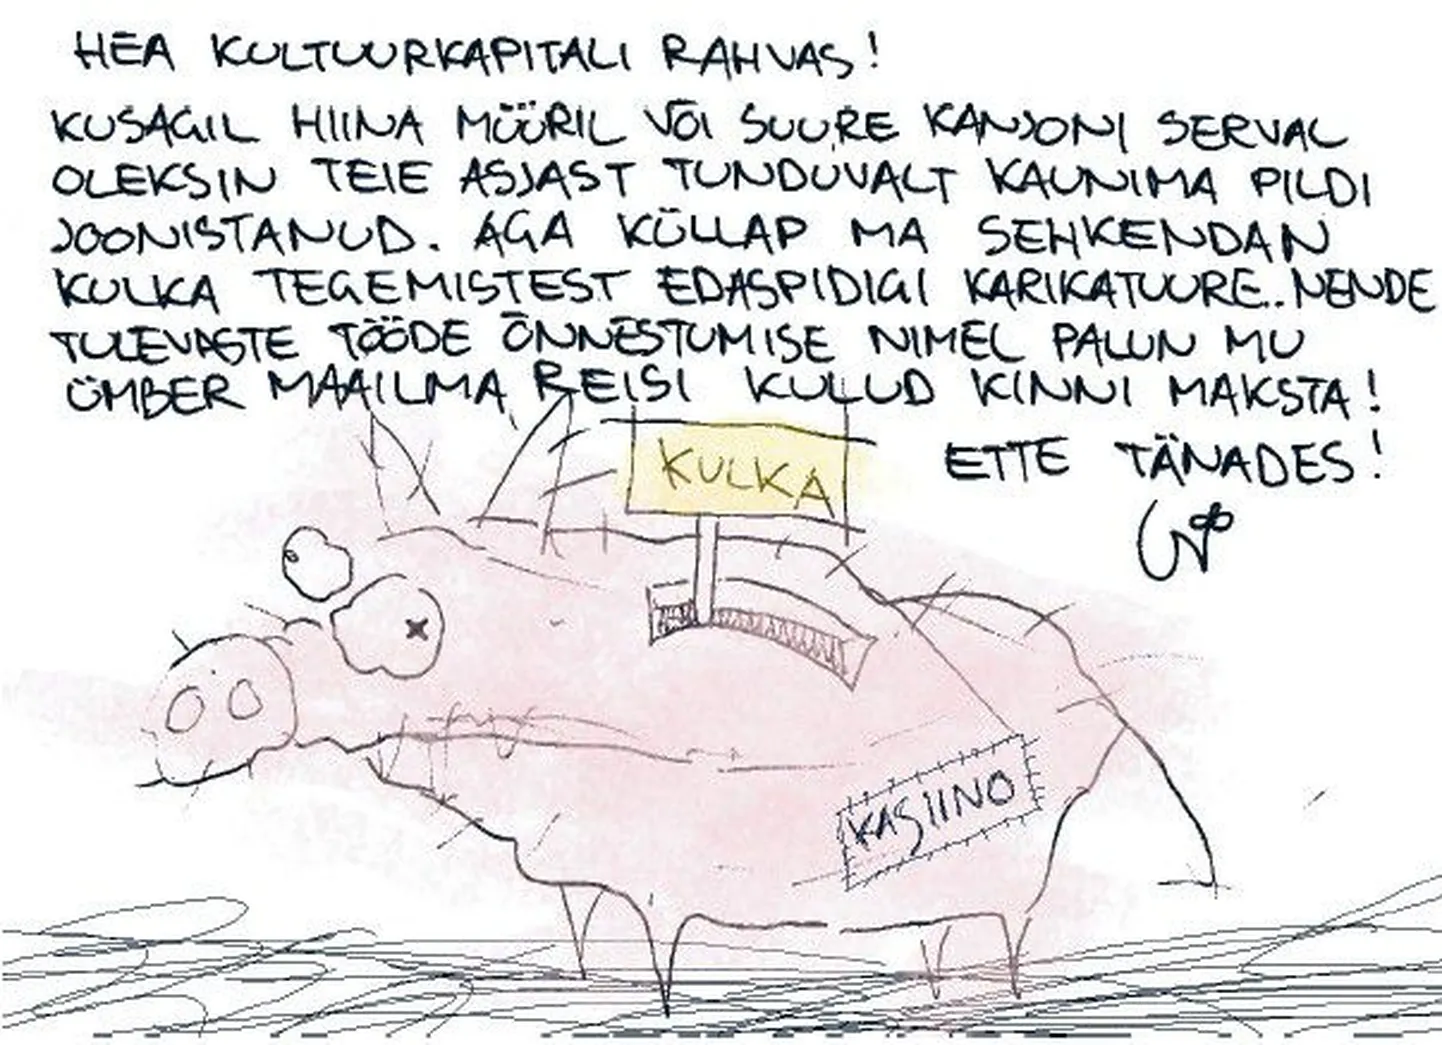 HEA KULTUURKAPITALI RAHVAS!
KUSAGIL HIINA MÜÜRIL VÕI SUURE KANJONI SERVAL
OLEKSIN TEIE ASJAST TUNDUVALT KAUNIMA PILDI
JOONISTANUD. AGA KÜLLAP MA SEHKENDAN
KULKA TEGEMISTEST EDASPIDIGI KARIKATUURE.. NENDE
TULEVASTE TÖÖDE ÕNNESTUMISE NIMEL PALUN MU
ÜMBER MAAILMA REISI KULUD KINNI MAKSTA!
ETTE TÄNADES!
KULKA
KASIINO